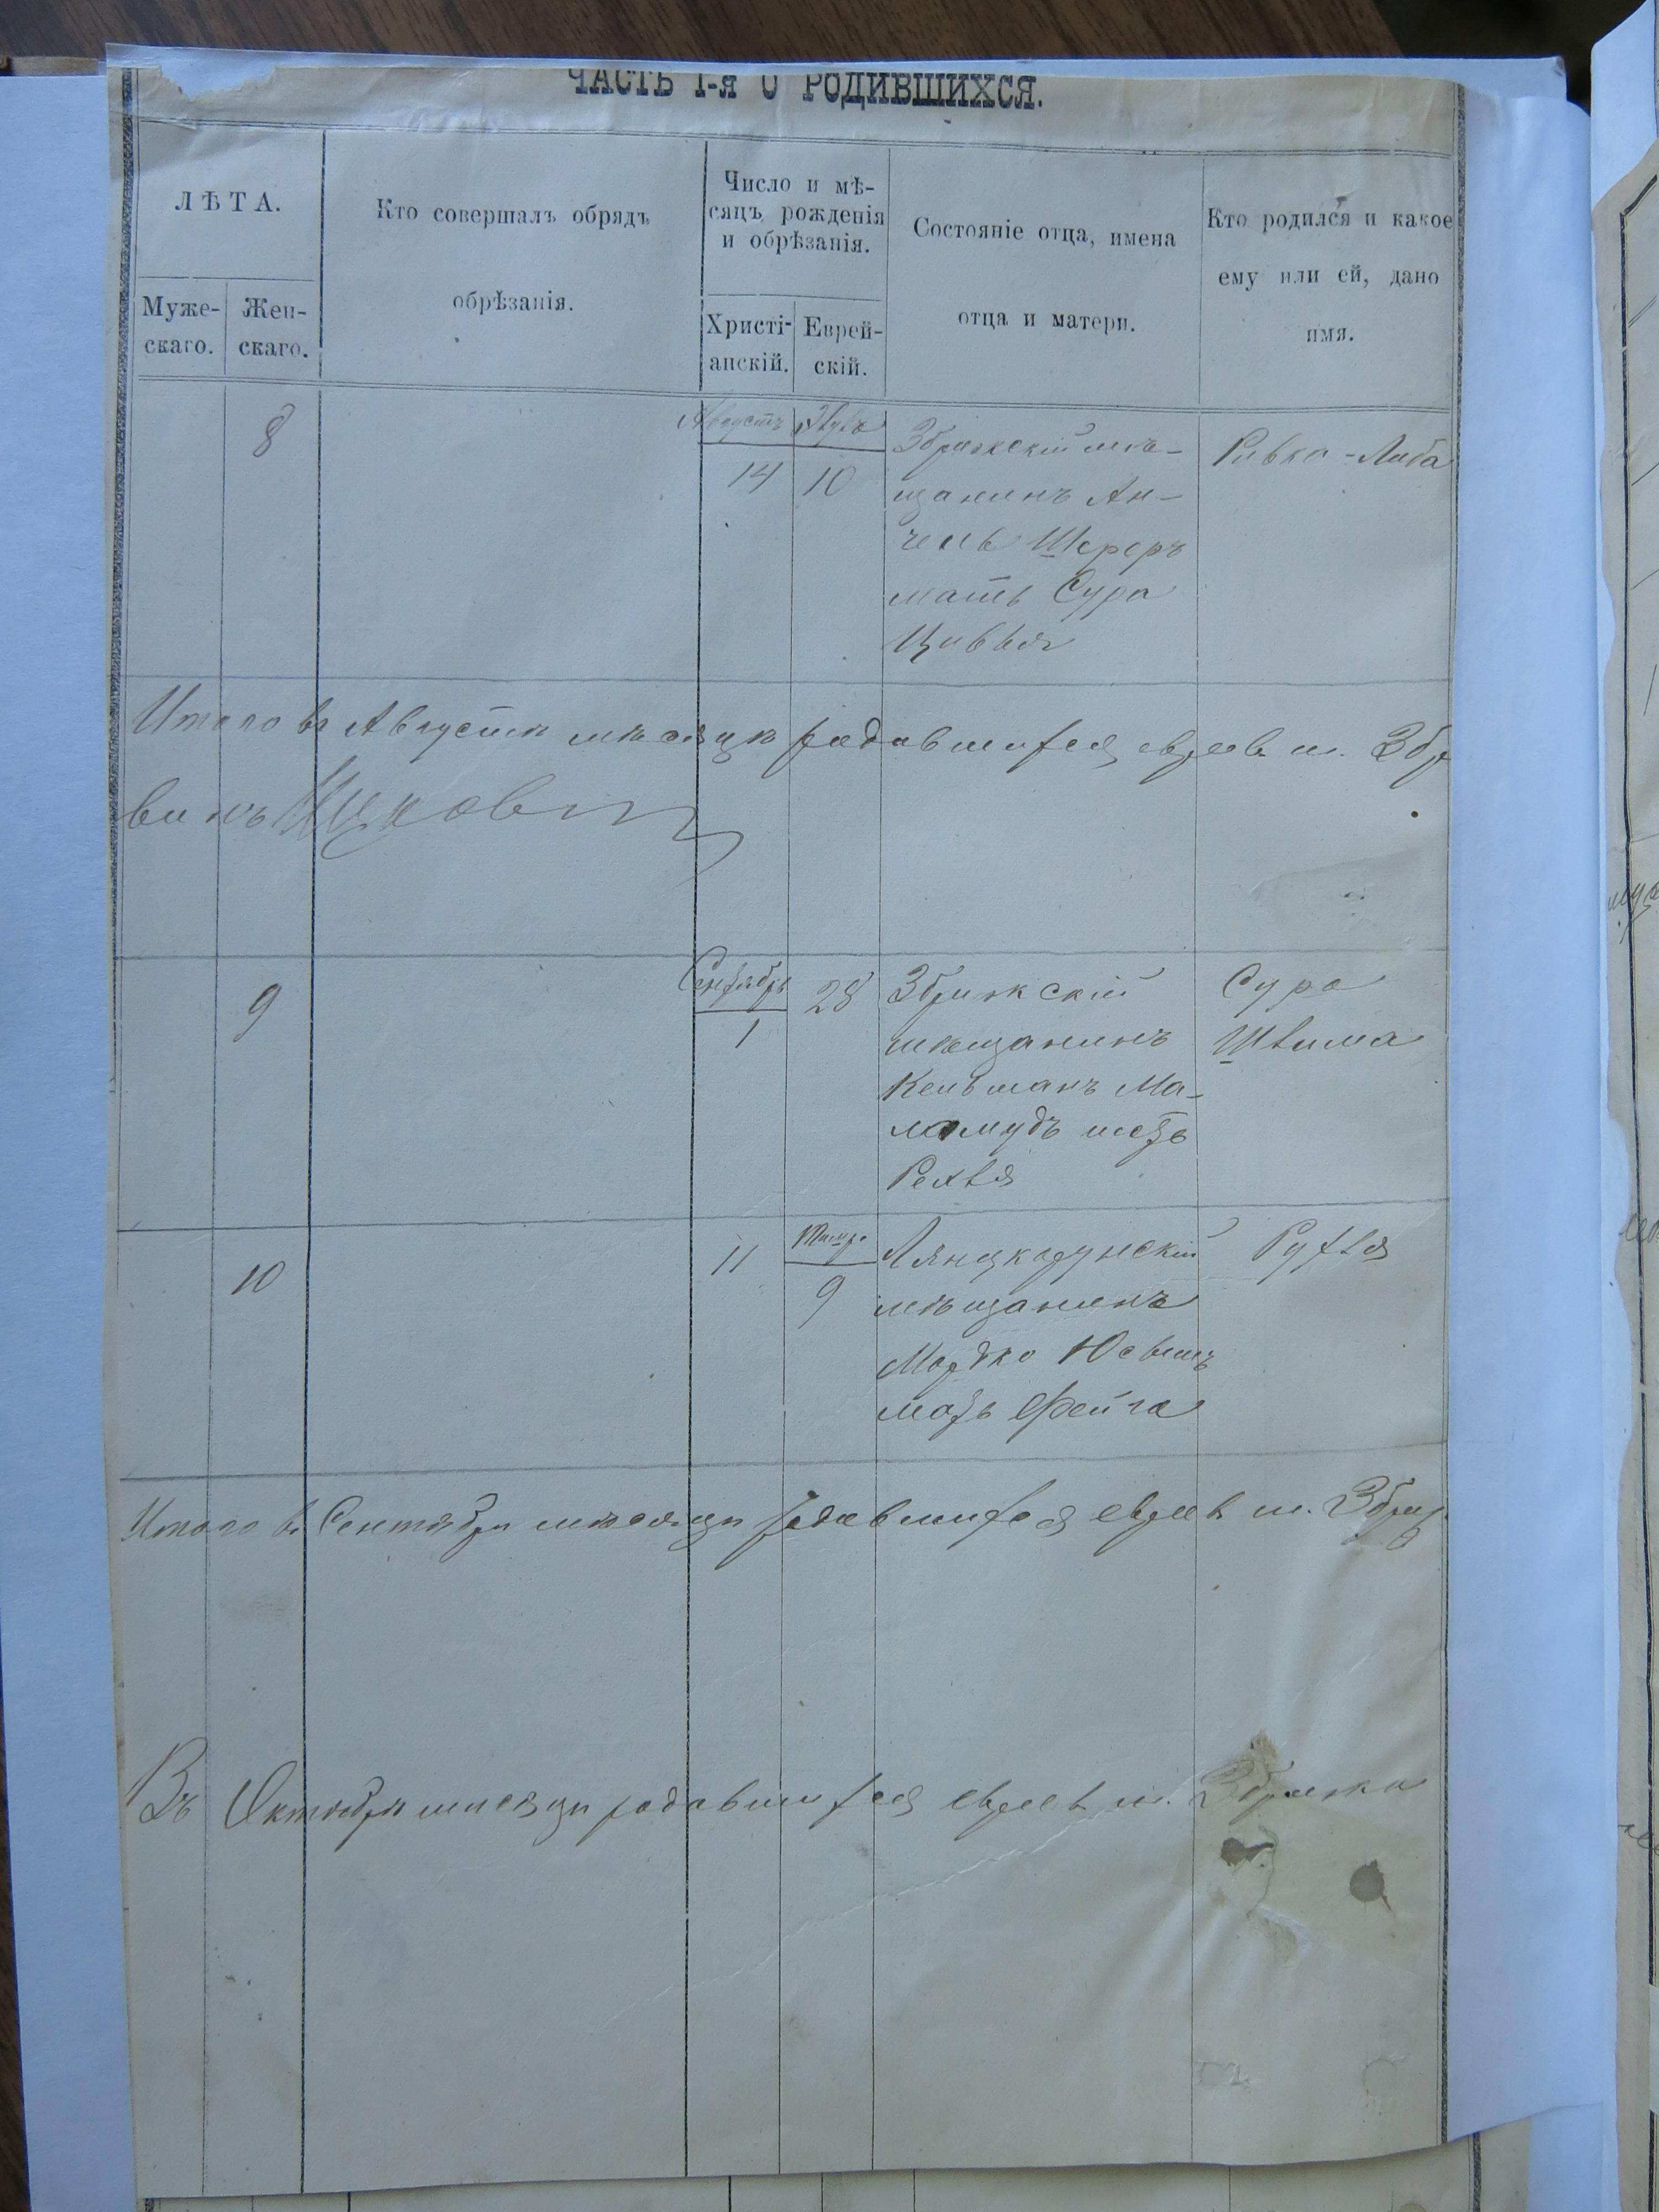 ЧАСТЬ I-я О РОДИВШИХСЯ.
ЛѢТА.
Муже-
скаго.
Жен-
скаго.
Кто совершалъ обрядъ
обрѣзанія.
Число и мѣ-
сяцъ рожденія
и обрѣзанія.
Христі-
анскій.
Еврей-
скій.
Состояніе отца, имена
отца и матери.
Кто родился и какое
ему или ей, дано
имя.
8
Августъ
14
10
Збрижскій мѣ-
щанинъ Ан-
чель Шереръ
мать Сура
Цивья
Ривка-Либа
Итого въ Августѣ мѣсяцѣ родившихся евреевъ м. Збр
винъ
9
Сентябрь
1
28
Збрижскій
мѣщанинъ
Кельманъ Ма-
ламудъ мать
Рехля
Сура
Шлима
10
11
Тишре
9
Лянцкорунскій
мѣщанинъ
Мордко
мать Фейга
Рухля
Итого въ Сентябрѣ мѣсяцѣ родившихся евреевъ м. Збриж
Въ Октябрѣ мѣсяцѣ родившихся евреевъ м. Збрижа